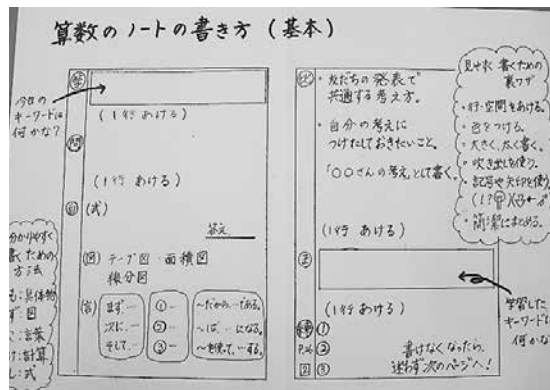 算数のノートの書き方（基本）
今日の
キーワードは
何かな？
(1行あける)
問
(1行あける)
自
(式)
答え
(図) テープ図・面積図
線分図
(言)
まず、…
次に、…
そして、…
①…
②…
③…
～だから、…である。
～は…になる。
～を使って、…する。
分かりやすく
書くための
方法
も：具体物
ず：図
：言葉
：計算
し：式
・友だちの発表で
共通する考え方。
・自分の考えに
つけたしておきたいこと。
「○○さんの考え」として書く。
(1行あける)
ま
(1行あける)
①
②
③
書けなくなったら、
迷わず次のページへ！
見やすく書くための
裏ワザ
・行・空間をあける。
・色をつける。
・大きく、太く書く。
・吹き出しを使う。
・記号や矢印を使う。
・簡潔にまとめる。
学習した
キーワードは
何かな